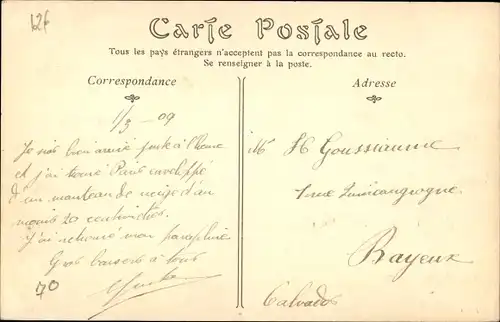 126
Carte Postale
Tous les pays étrangers n'acceptent pas la correspondance au recto.
Se renseigner à la poste.
Correspondance
Adresse
1/3 - 09
Je suis bien arrivé juste à l'heure
et j'ai trouvé Paris enveloppé
d'un manteau de neige d'au
moins 20 centimètres.
J'ai retrouvé mon parapluie
Gros baisers à tous
70
Mr H Goussiaume
rue
Bayeux
Calvados